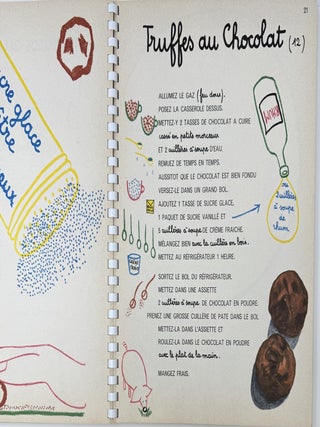 cre glace
être
oux
21
Truffes au Chocolat (12)
ALLUMEZ LE GAZ (feu doux).
POSEZ LA CASSEROLE DESSUS.
METTEZ-Y 2 TASSES DE CHOCOLAT A CUIRE
cassé en petits morceaux
et 2 cuillères à soupe D'EAU.
REMUEZ DE TEMPS EN TEMPS.
AUSSITOT QUE LE CHOCOLAT EST BIEN FONDU
VERSEZ-LE DANS UN GRAND BOL.
AJOUTEZ 1 TASSE DE SUCRE GLACE,
1 PAQUET DE SUCRE VANILLÉ ET
5 cuillères à soupe DE CRÈME FRAICHE.
MÉLANGEZ BIEN avec la cuillère en bois.
METTEZ AU RÉFRIGÉRATEUR 1 HEURE.
SORTEZ LE BOL DU RÉFRIGÉRATEUR.
METTEZ DANS UNE ASSIETTE
2 cuillères à soupe DE CHOCOLAT EN POUDRE.
PRENEZ UNE GROSSE CUILLÈRE DE PATE DANS LE BOL
METTEZ-LA DANS L'ASSIETTE ET
ROULEZ-LA DANS LE CHOCOLAT EN POUDRE
avec le plat de la main.
MANGEZ FRAIS.
RHUM
ou
2 cuillères
à soupe
de
rhum